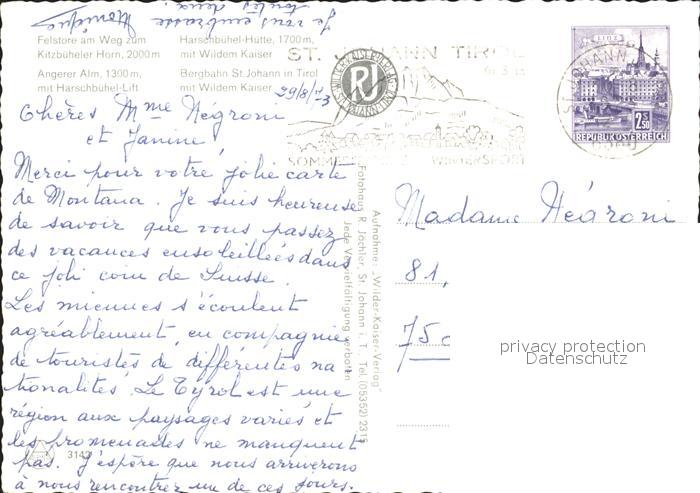 Je vous embrasse
toutes deux.
Monique
Felstore am Weg zum
Kitzbüheler Horn, 2000 m
Angerer Alm, 1300 m,
mit Harschbühel-Lift
Harschbühel-Hütte, 1700 m,
mit Wildem Kaiser
Bergbahn St. Johann in Tirol
mit Wildem Kaiser
ST. JOHANN TIROL
RJ
WINTERSPORT
LINZ
2.50
REPUBLIK ÖSTERREICH
29/8/73
Chères Mme Négroni
et Janine,
Merci pour votre jolie carte
de Montana. Je suis heureuse
de savoir que vous passez
des vacances ensoleillées dans
ce joli coin de Suisse.
Les miennes s'écoulent
agréablement, en compagnie
de touristes de différentes na
tionalités. Le Tyrol est une
région aux paysages variés et
les promenades ne manquent
pas. J'espère que nous arriverons
à nous rencontrer un de ces jours.
3143
Aufnahme: „Wilder-Kaiser-Verlag"
Fotohaus R. Jöchler, St. Johann i. T., Tel. (05352) 2315
Jede Vervielfältigung verboten
Madame Négroni
81,
75
privacy protection
Datenschutz